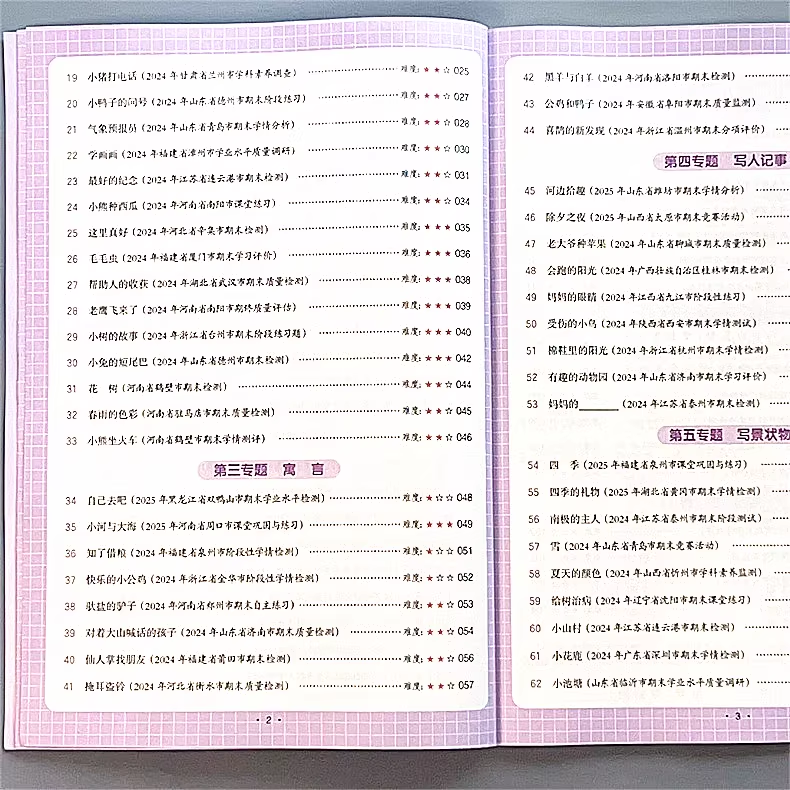 19 小猪打电话（2024 年甘肃省兰州市学科素养调查）······难度：★★☆ 025
20 小鸭子的问号（2024 年山东省德州市期末阶段练习）······难度：★★☆ 027
21 气象预报员（2024 年山东省青岛市期末学情分析）······难度：★★☆ 028
22 学画画（2024 年福建省漳州市学业水平质量调研）······难度：★★★ 030
23 最好的纪念（2024 年江苏省连云港市期末检测）······难度：★★★ 031
24 小熊种西瓜（2024 年河南省南阳市课堂练习）······难度：★★☆ 034
25 这里真好（2024 年河北省辛集市期末检测）······难度：★★★ 035
26 毛毛虫（2024 年福建省厦门市期末学习评价）······难度：★★★ 036
27 帮助人的收获（2024 年湖北省武汉市期末质量检测）······难度：★★★ 038
28 老鹰飞来了（2024 年河南省南阳市期终质量评估）······难度：★★★ 039
29 小树的故事（2024 年浙江省台州市期末阶段练习题）······难度：★★★ 040
30 小兔的短尾巴（2024 年山东省德州市期末检测）······难度：★★★ 042
31 花 树（河南省鹤壁市期末检测）······难度：★☆☆ 044
32 春雨的色彩（河南省驻马店市期末质量检测）······难度：★★☆ 045
33 小熊坐火车（河南省鹤壁市期末学情测评）······难度：★☆☆ 046
第三专题 寓 言
34 自己去吧（2025 年黑龙江省双鸭山市期末学业水平检测）······难度：★☆☆ 048
35 小河与大海（2025 年河南省周口市课堂巩固与练习）······难度：★★★ 049
36 知了借粮（2024 年福建省泉州市阶段性学情检测）······难度：★☆☆ 051
37 快乐的小公鸡（2024 年浙江省金华市阶段性学情检测）······难度：★☆☆ 052
38 驮盐的驴子（2024 年河南省郑州市期末自主练习）······难度：★★☆ 053
39 对着大山喊话的孩子（2024 年山东省济南市期末质量检测）······难度：★★☆ 054
40 仙人掌找朋友（2024 年福建省莆田市期末检测）······难度：★★☆ 056
41 掩耳盗铃（2024 年河北省衡水市期末质量检测）······难度：★★☆ 057
· 2 ·
42 黑羊与白羊（2024 年河南省洛阳市期末检测）······
43 公鸡和鸭子（2024 年安徽省阜阳市期末质量监测）······
44 喜鹊的新发现（2024 年浙江省温州市期末分项评价）······
第四专题 写人记事
45 河边拾趣（2025 年山东省潍坊市期末学情分析）······
46 除夕之夜（2025 年山西省太原市期末竞赛活动）······
47 老大爷种苹果（2024 年山东省聊城市期末质量检测）······
48 会跑的阳光（2024 年广西壮族自治区桂林市期末检测）······
49 妈妈的眼睛（2024 年江西省九江市阶段性练习）······
50 受伤的小鸟（2024 年陕西省西安市期末学情测试）······
51 棉鞋里的阳光（2024 年浙江省杭州市期末学情检测）······
52 有趣的动物园（2024 年山东省济南市期末学习评价）······
53 妈妈的______（2024 年江苏省泰州市期末检测）······
第五专题 写景状物
54 四 季（2025 年福建省泉州市课堂巩固与练习）······
55 四季的礼物（2025 年湖北省黄冈市期末学情检测）······
56 南极的主人（2024 年江苏省泰州市期末阶段测试）······
57 雪（2024 年山东省青岛市期末竞赛活动）······
58 夏天的颜色（2024 年山西省忻州市学科素养监测）······
59 给树治病（2024 年辽宁省沈阳市期末课堂练习）······
60 小山村（2024 年江苏省连云港市期末检测）······
61 小花鹿（2024 年广东省深圳市期末学情检测）······
62 小池塘（山东省临沂市期末学业水平质量调研）······
· 3 ·